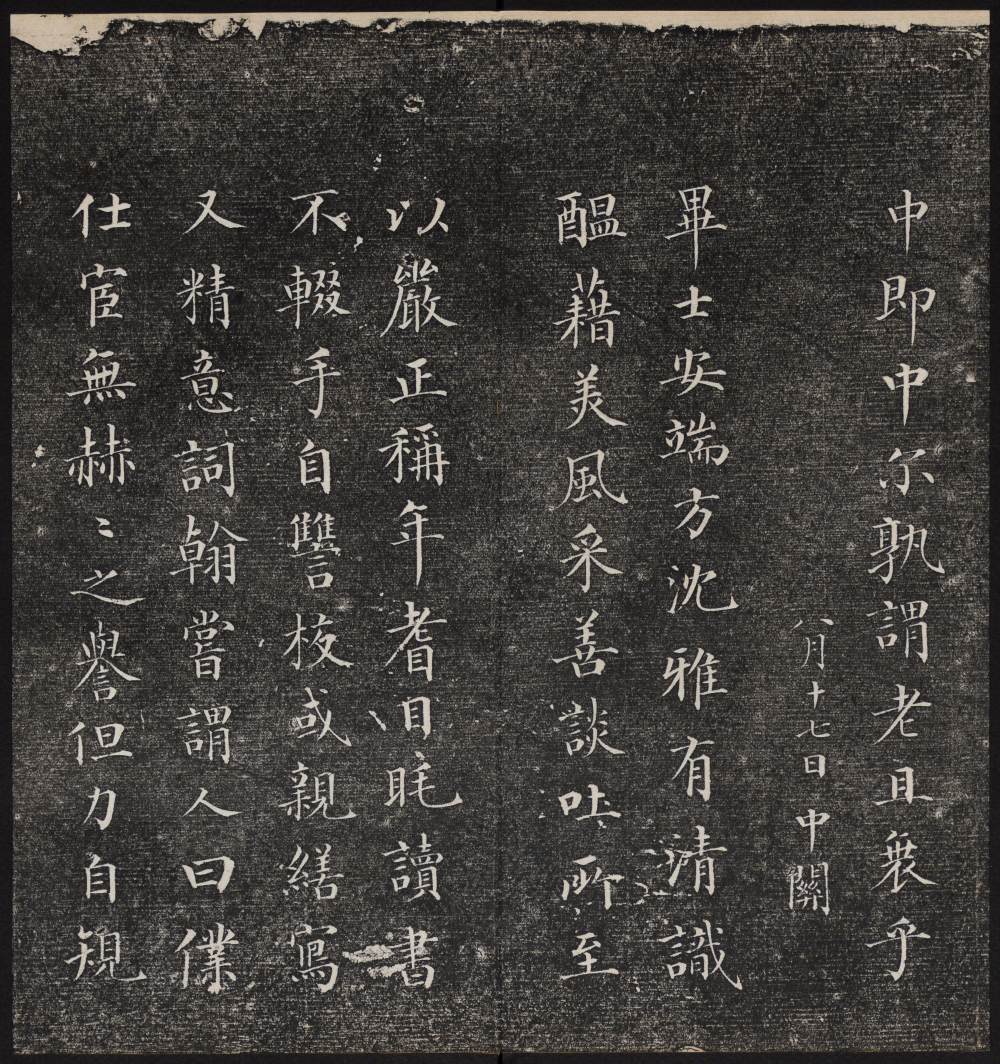 中即中尔孰謂老且衰乎
八月十七日中關
畢士安端方沈雅有清識
醖藉美風采善談吐所至
以嚴正稱年耆目眊讀書
不輟手自讐校或親繕寫
又精意詞翰嘗謂人曰僕
仕宦無赫〻之譽但力自規